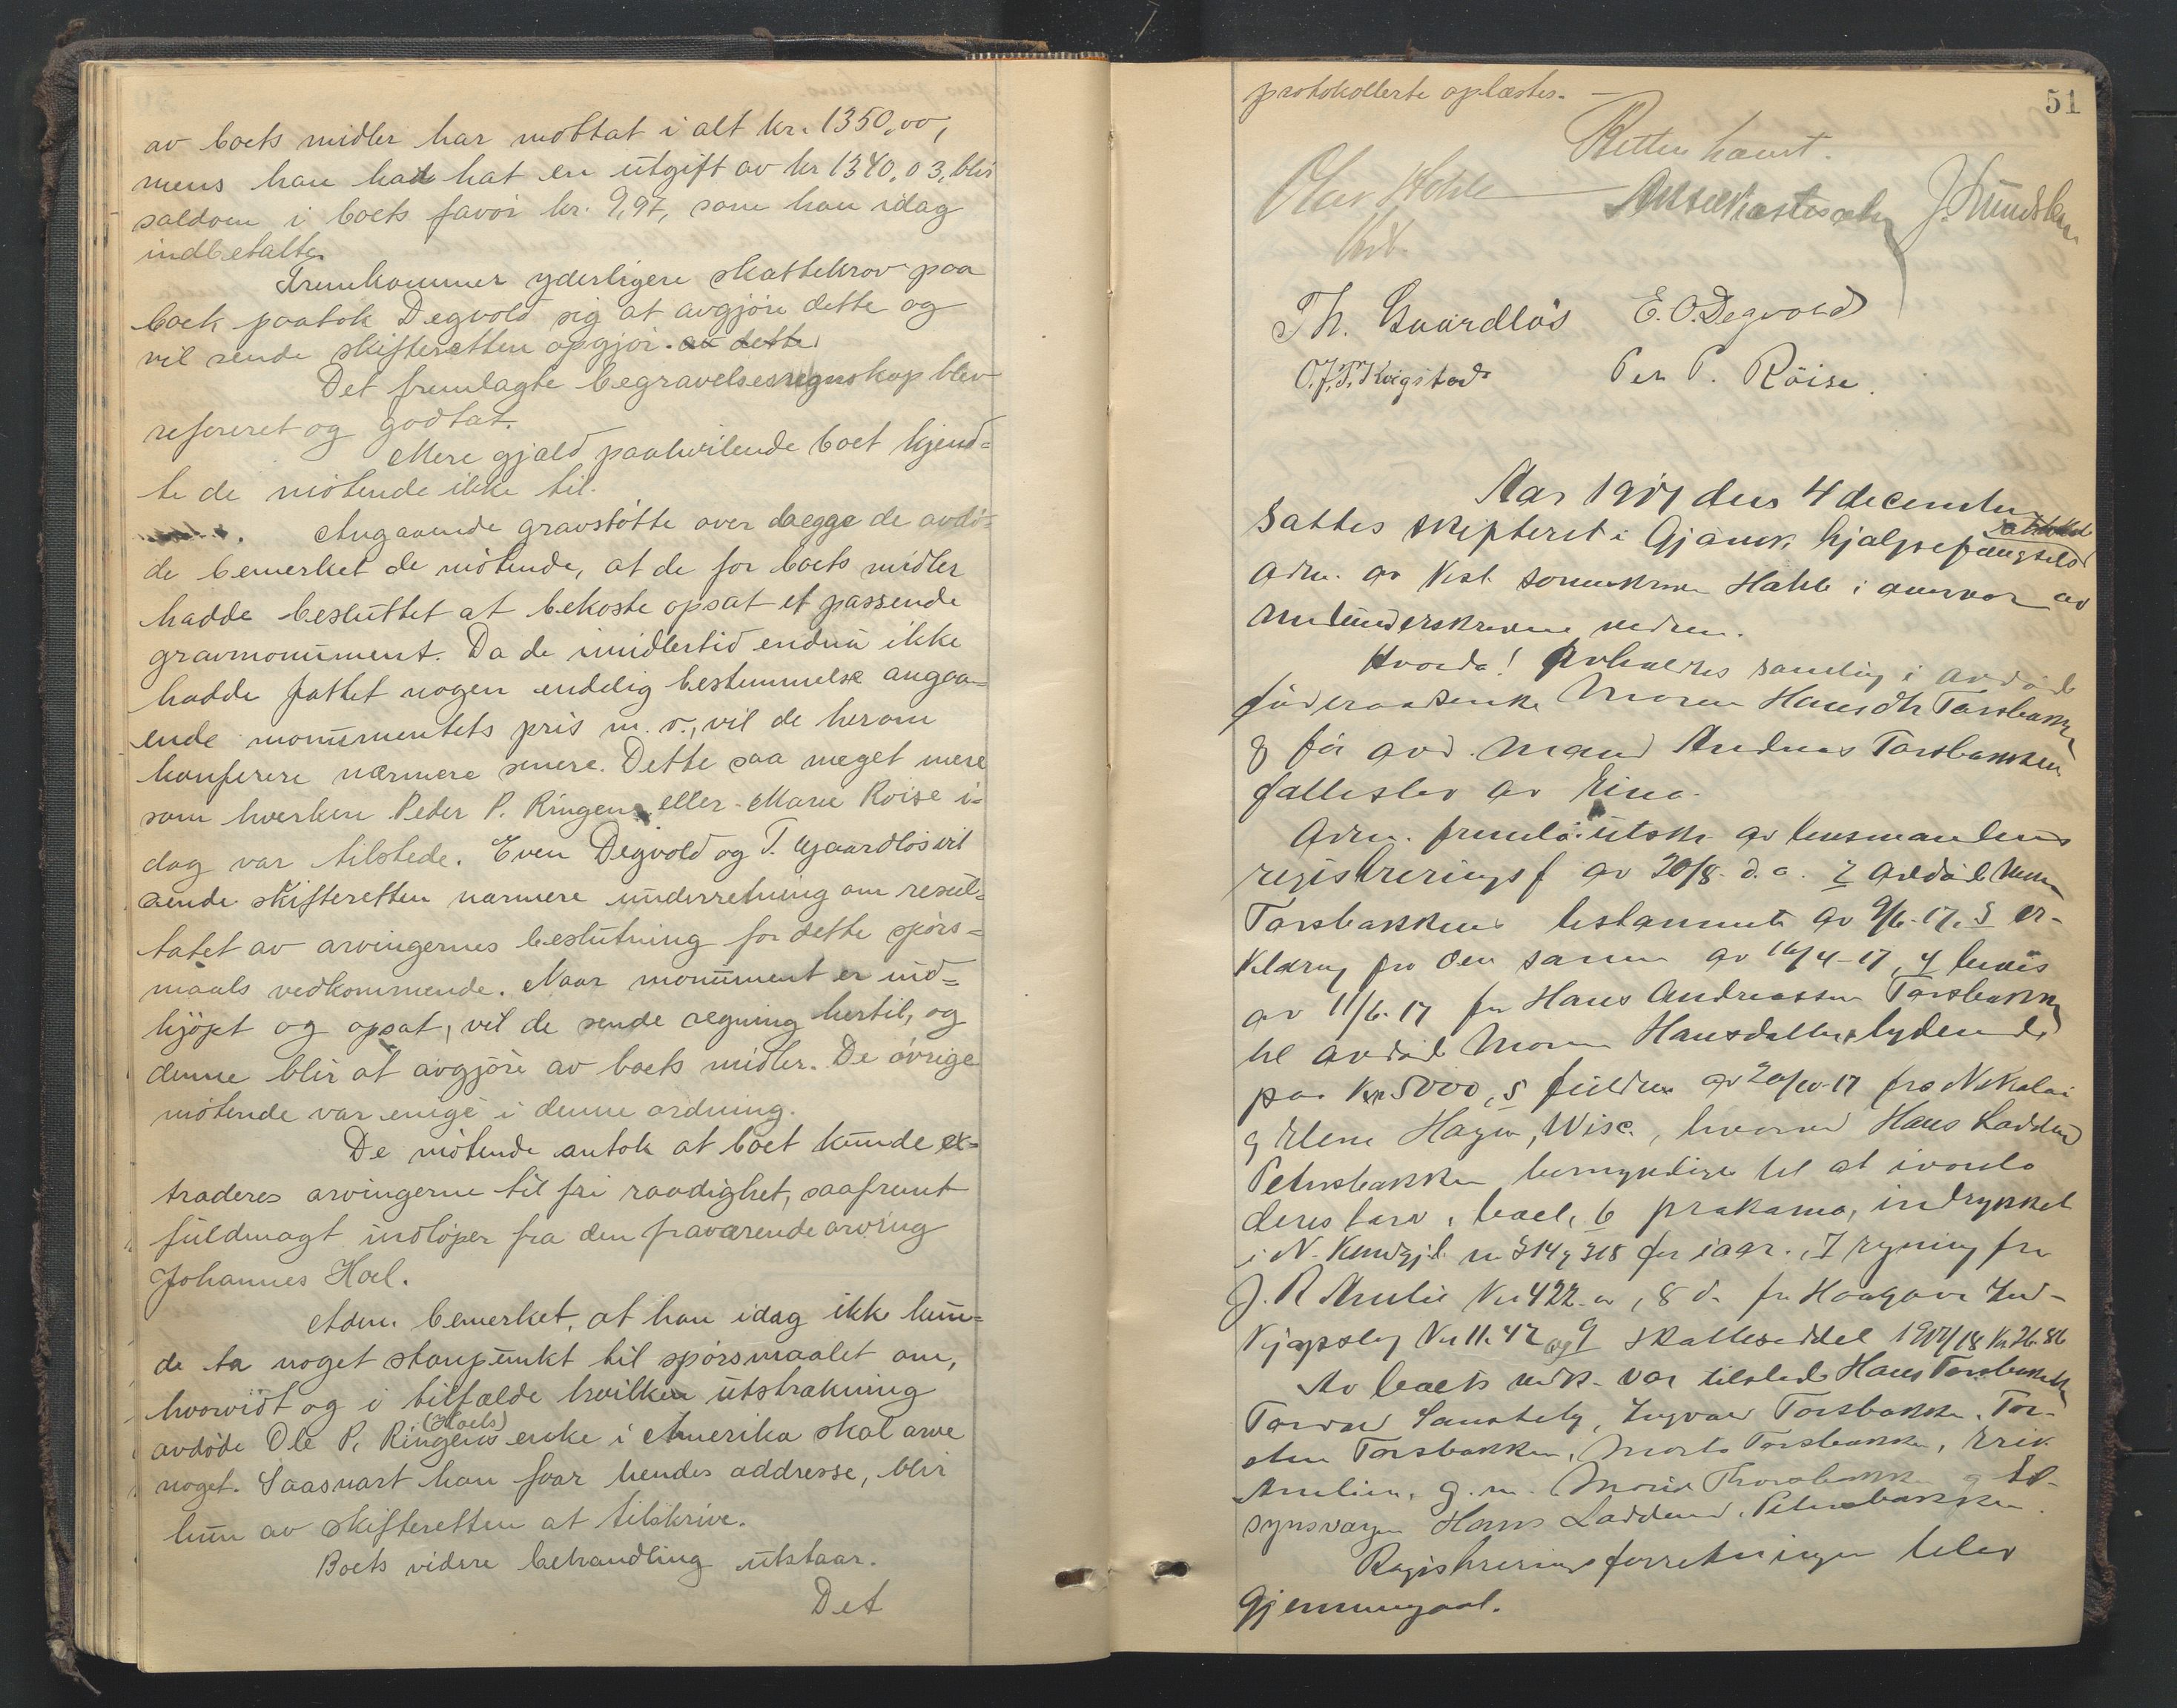 av boets midler har mottat i alt kr. 1350,00,
mens han had hat en utgift av kr 1340,03, blir
saldoen i boets favör kr. 9,97, som han idag
indbetalte.
Fremkommer yderligere skattekrav paa
boet paatok Degvold sig at avgjöre dette og
vil sende skifteretten opgjör. av dette.
Det fremlagte begravelsesregnskap blev
referert og godtat.
Mere gjæld paahvilende boet kjend=
te de mötende ikke til.
Angaaende gravstötte over begge de avdö=
de bemerket de mötende, at de for boets midler
hadde besluttet at bekoste opsat et passende
gravmonument. Da de imidlertid endnu ikke
hadde fattet nogen endelig bestemmelse angaa=
ende monumentets pris m. v., vil de herom
konferere nærmere senere. Dette saa meget mere
som hverken Peder P. Ringen eller Marie Röise i=
dag var tilstede. Even Degvold og T. Gaardlös vil
sende skifteretten nærmere underretning om resul=
tatet av arvingernes beslutning for dette spörs=
maals vedkommende. Naar monument er ind=
kjöpt og opsat, vil de sende regning hertil, og
denne blir at avgjöre av boets midler. De övrige
mötende var enige i denne ordning.
De mötende antok at boet kunde ex=
traderes arvingerne til fri raadighet, saafremt
fuldmagt indlöper fra den fraværende arving
Johannes Hoel.
Adm. bemerket, at han idag ikke kun=
de ta noget standpunkt til spörsmaalet om,
hvorvidt og i tilfælde hvilken utstrækning
(Hoels)
avdöde Ole P. Ringens enke i Amerika skal arve
noget. Saasnart han faar hendes addresse, blir
hun av skifteretten at tilskrive.
Boets videre behandling utstaar.
Det
51
protokollerte oplæstes.
Retten hævet.
Olav Hohle
Th. Gaardlös E. O. Degvold
O. J. T. Kvigstad Per P. Röise.
Aar 1917 den 4 december
sattes skifteret i Gjövik hjælpefængsels
adm. av
medunderskrevne vidner.
Hvorda! avholdes samling i avdöde
föderaadsenke Moren Hansdtr Torsbakken
g för avd. mand Andreas Torsbakken
fællesbo av Eina.
Adm. fremla: 1 utskr av lensmandens
registreringsf av 30/8 d. a. 2 avdöde
Torsbakkens testamente av 9/6-17, 3 er=
klæring fra den samme av 16/4-17, 4 bevis
av 11/6-17 fra Hans Andreassen Torsbakken
til avdöde Moren Hansdatter lydende
paa kr 5000, 5 fuldm av 20/10-17 fra Nikolai
g Elene Hagen, Wisc., hvorved Hans Laddend
Petersbakken bemyndiges til at ivareta
deres tarv i boet, 6 proklama, indrykket
i N. Kundgj.bl. nr 314 g 318 for iaar. 7 regning fra
J. R. Amlie kr 422. , 8 d. fra Haagaar Ind-
kjöpslag kr 11.47 og 9 skatteseddel 1917/18 kr 26.86
Av boets vedk. var tilstede Hans Torsbakken
Torvald Ingvald Torsbakken, Tor-
sten Torsbakken, Marte Torsbakken, Erik
Amlien, g. m. Marie Thorsbakken g til-
synsværge Hans Laddend. Petersbakken.
Registreringsforretningen blev
gjennemgaat.